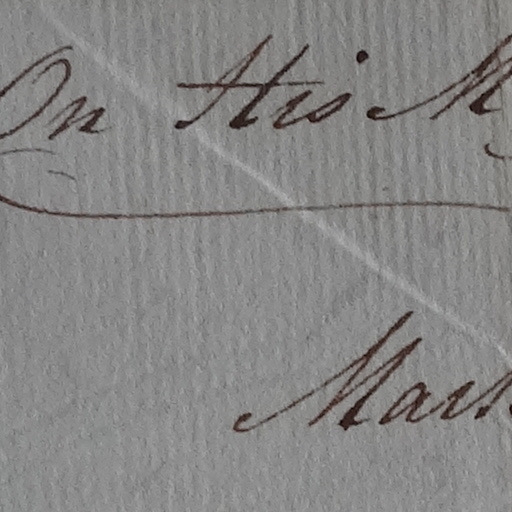 On His M
Mark